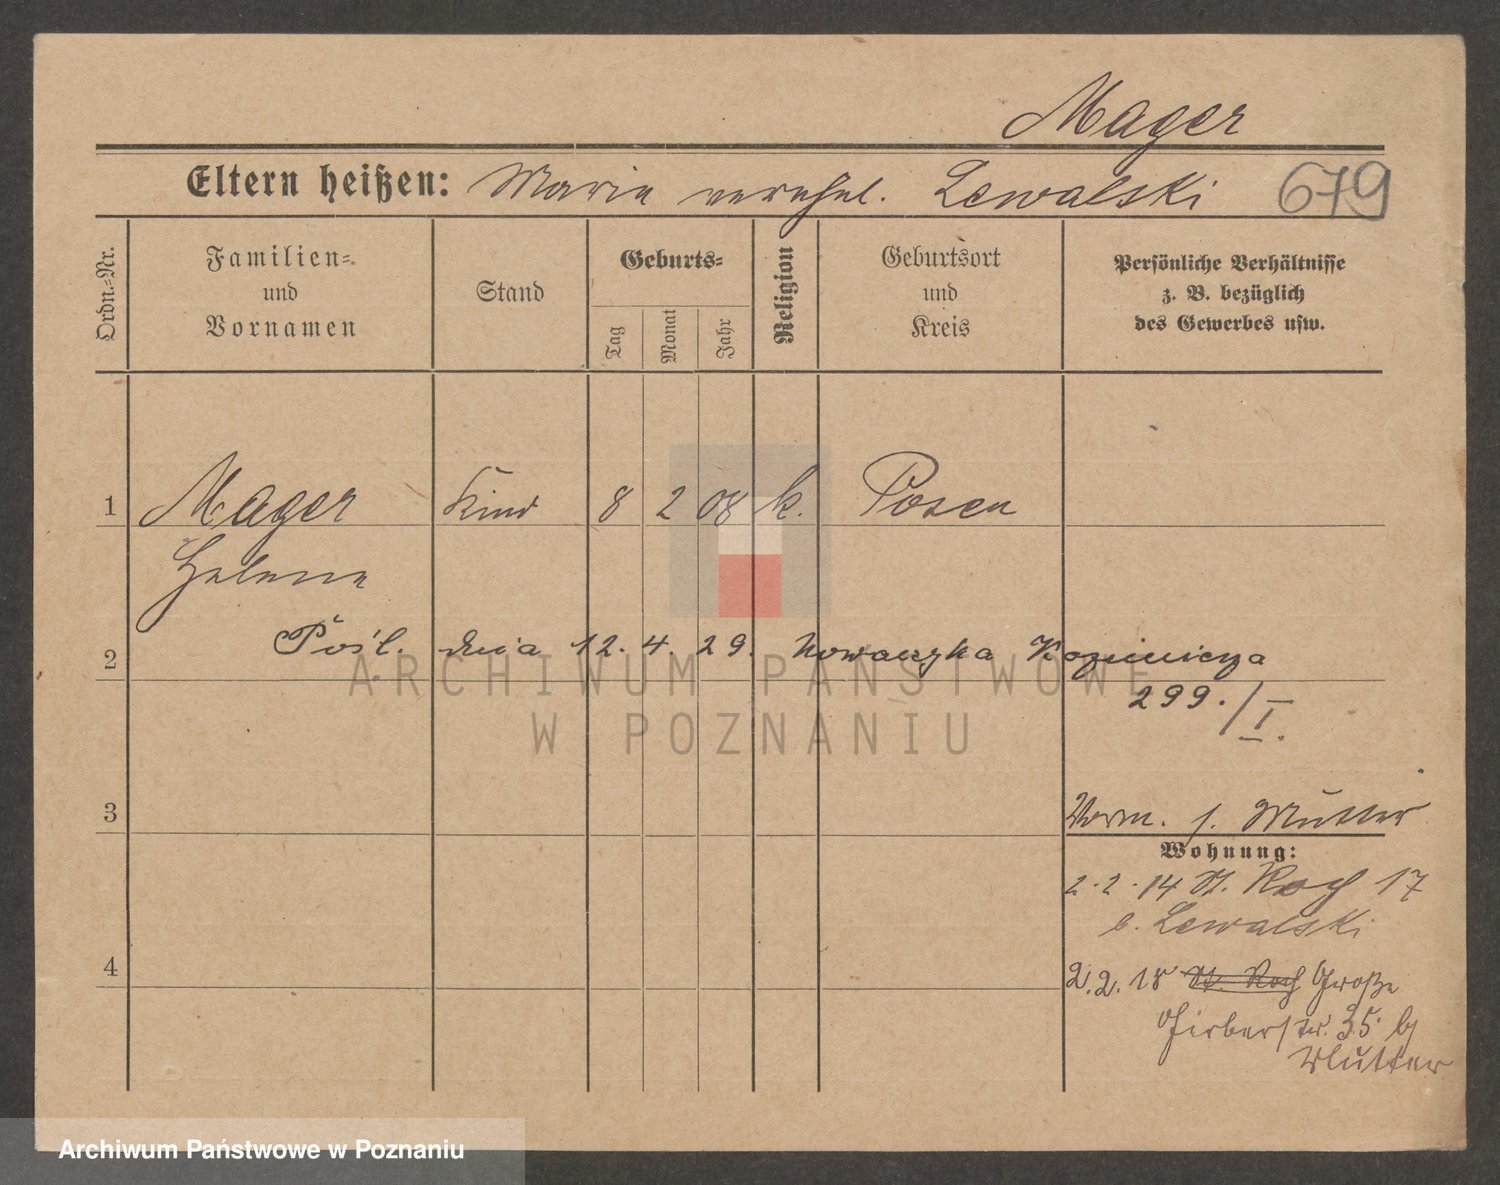 Mager
Eltern heißen: Marie verehel. Lewalski 679
Ordn.-Nr.
Familien-
und
Vornamen
Stand
Geburts-
Tag
Monat
Jahr
Religion
Geburtsort
und
Kreis
Persönliche Verhältnisse
z. B. bezüglich
des Gewerbes usw.
1 Mager Kind 8 2 08 k. Posen
Helene
2 Pośl. dnia 12. 4. 29. Nowaczyka Kazimierza
299./I.
ARCHIWUM PAŃSTWOWE
W POZNANIU
3 Vorm. s. Mutter
Wohnung:
2.2.14 St. Roch 17
b. Lewalski
4 2.2.18 St. Roch Große
Gerberstr. 35 bei
Mutter
Archiwum Państwowe w Poznaniu